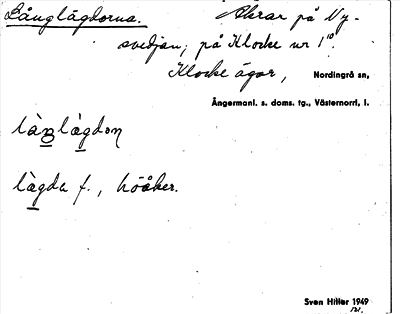 Långlägdorna. Åkrar på Ny-
svedjan; på Klocke nr 1¹⁰.
Klocke ägor, Nordingrå sn,
Ångermanl. s. doms. tg., Västernorrl. l.
làŋlægdon
lægda f., höåker.
Sven Hitler 1949